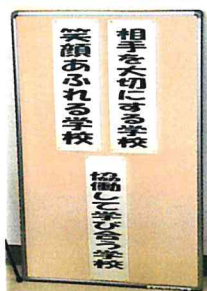 相手を大切にする学校
笑顔あふれる学校
協働して学び合う学校